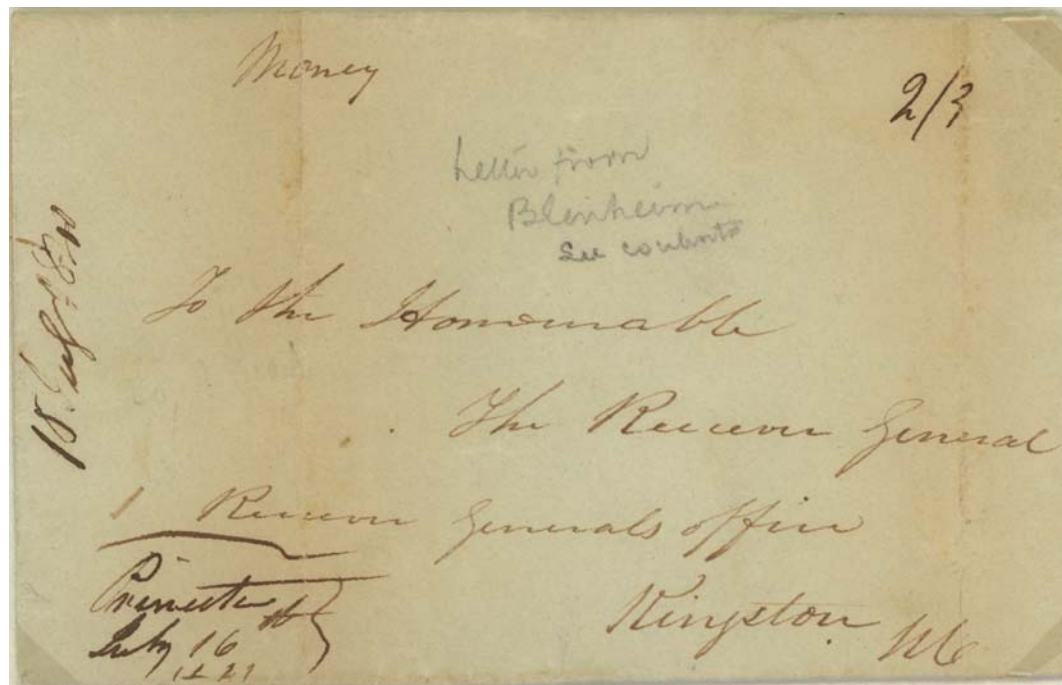 Money
2/3
Letter from
Blenheim
See contents
To the Honourable
The Receiver General
Receiver Generals office
Kingston
July 16
18 July